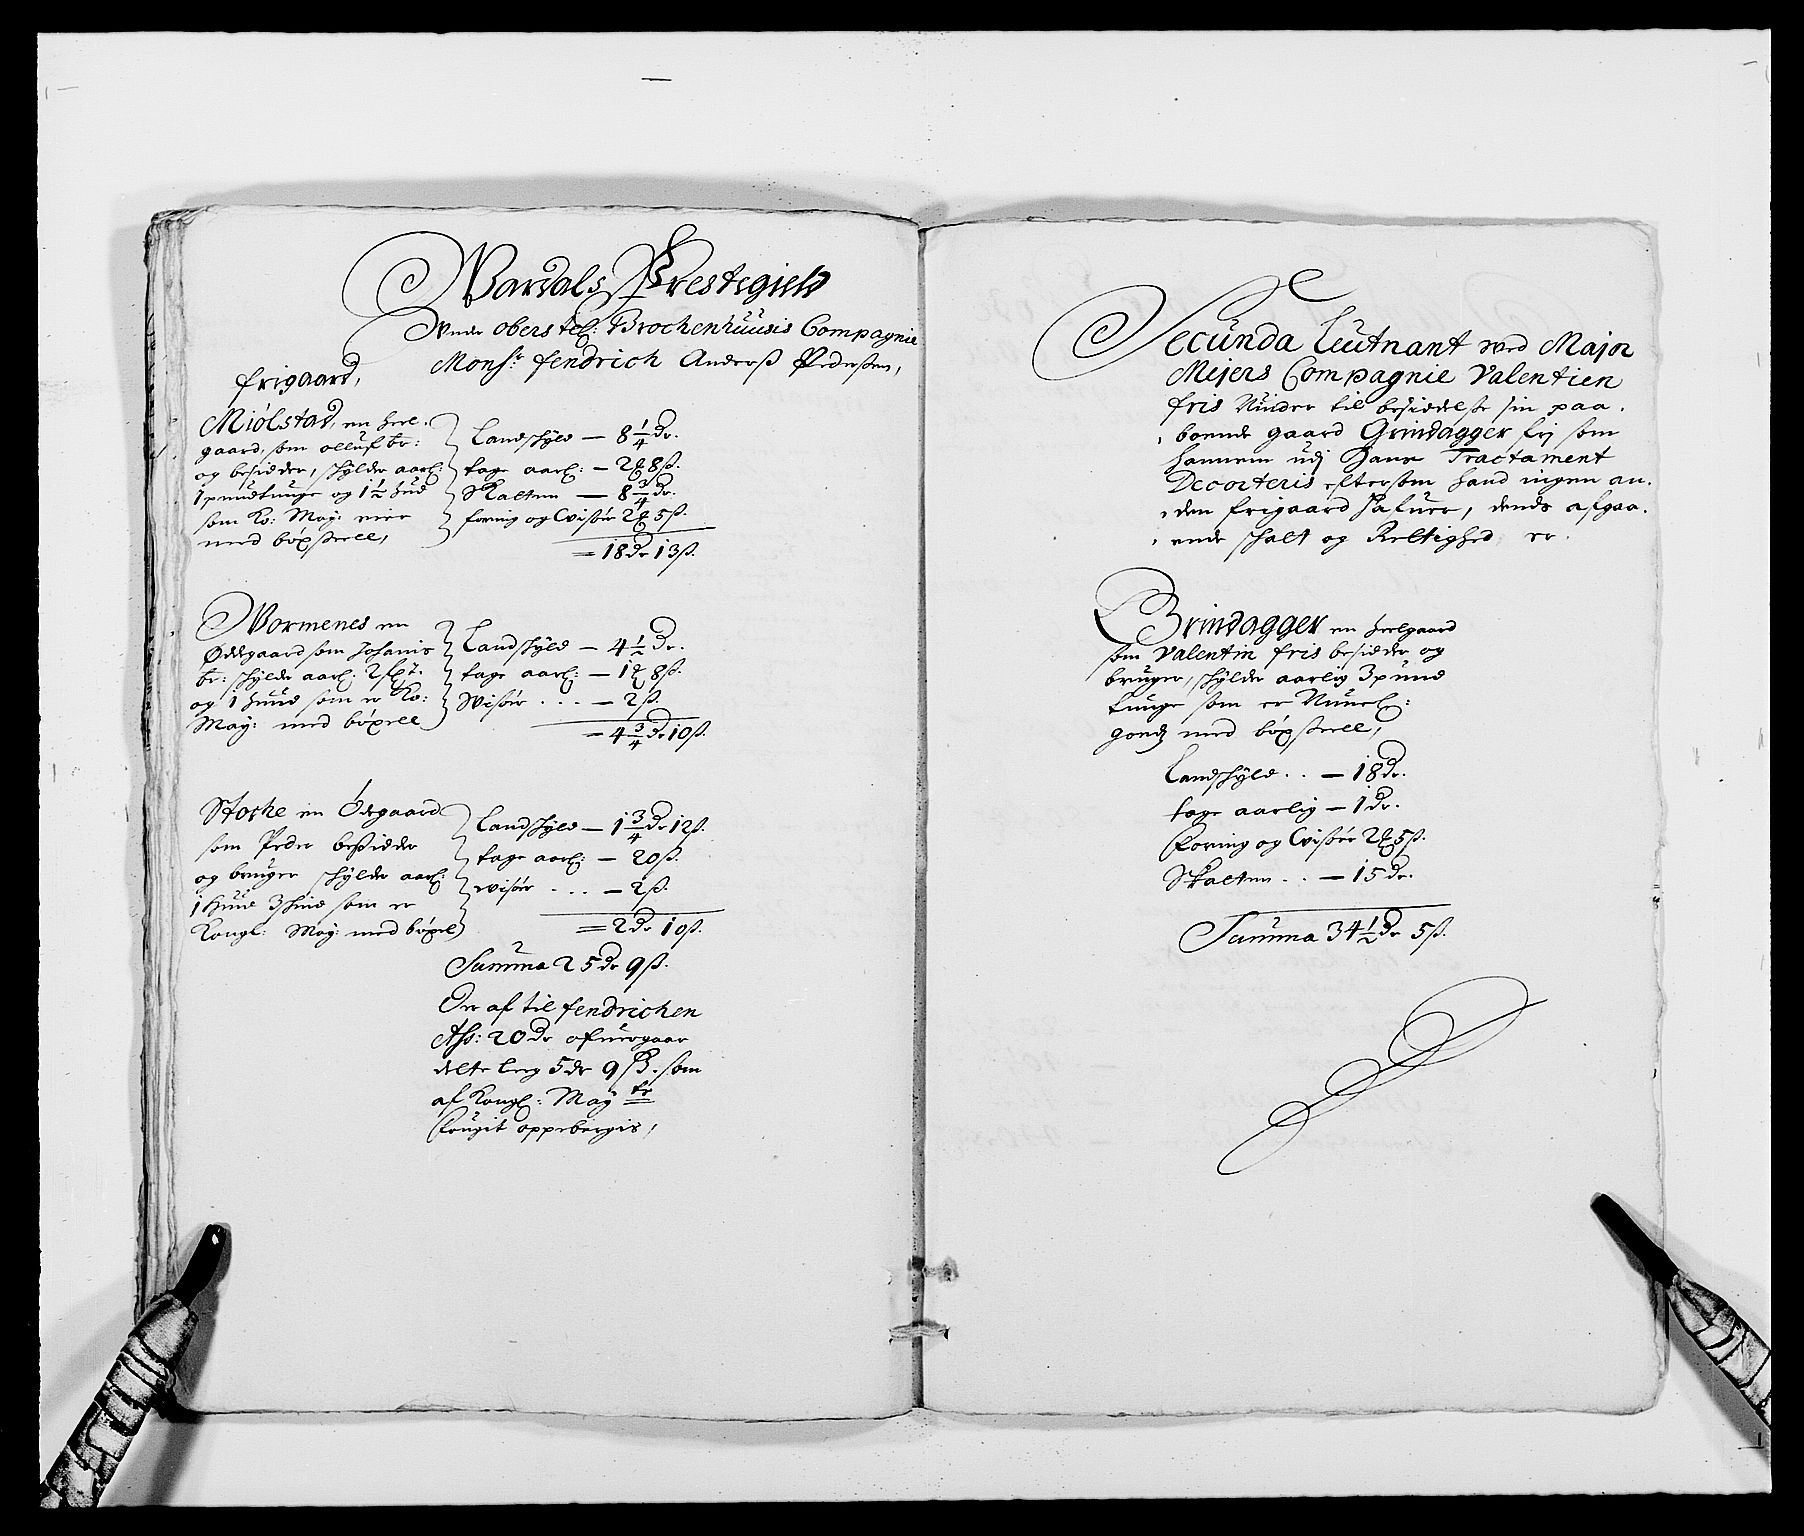 Wardals Prestegield
Under oberste L: Brochenhuusis Compagnie
Monsr fendrich Anderss Pederssen,
frigaard,
Miølstad, en heel
gaard, som olluf br:
og besidder, schylder aarl:
1 pundtunge og 1½ hud
som Ko: May: eier
med bøxsell,
Landschyld — 8¼ dr.
tage aarl: — 2 ꝶ 8 ß.
Skatten — 8¾ dr.
foring og Wisør 2 ꝶ 5 ß.
= 18 dr 13 ß.
Wormenes en
Ødegaard som Johanis
br: schylder aarl: 2
og 1 huud som er Ko:
May: med bøxell
Landschyld — 4½ dr.
tage aarl: — 1 ꝶ 8 ß.
Wisør . . . — 2 ß.
= 4¾ dr 10 ß.
Stocke en Ødegaard
som Peder besidder
og bruger schylder aarl:
1 huud 3 skind som er
Kongl: May: med bøxel
Landschyld — 1¾ dr 12 ß.
tage aarl: — 20 ß.
wisør . . . — 2 ß.
= 2 dr 10 ß.
Summa 25 dr 9 ß.
Der af til fendrichen
Ass: 20 dr ofuergaar
dette leeg 5 dr 9 ß. som
af Kongl: May tz
fougit oppebergis,
Secunda Leutnant ved Major
Meiers Compagnie Valentien
fris Under til besiddelse sin paa
boende gaard Grindagger frj som
hannem udj hans Tractament
Decorteris eftersom hand ingen an
den frigaard hafuer, dends afgaa
ende schatt og Rettighed er
Grindagger en heelgaard
som Valentin fris besidder og
bruger, schylder aarlig 3 pund
tunge som er Nunel:
godz med bøxsell,
Landschyld . . — 18 dr.
tage aarlig — 1 dr.
Foring og Wisør 2 ꝶ 5 ß.
Skatten . . — 15 dr.
Summa 34½ dr 5 ß.